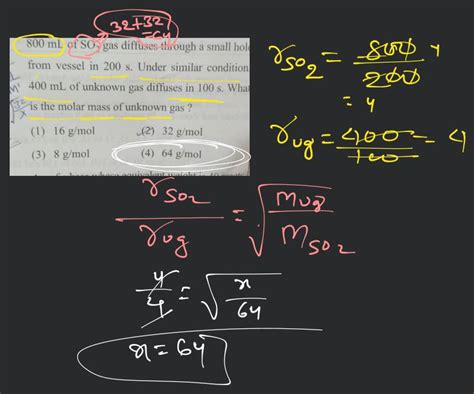 32+32
=64
800 mL of SO2 gas diffuses through a small hole
from vessel in 200 s. Under similar condition
400 mL of unknown gas diffuses in 100 s. What
is the molar mass of unknown gas ?
(1) 16 g/mol
(2) 32 g/mol
(3) 8 g/mol
(4) 64 g/mol
rSO2 = 800/200 4
= 4
rug = 400/100 = 4
rSO2/rug = √(Mug/MSO2)
4/4 = √(x/64)
x = 64